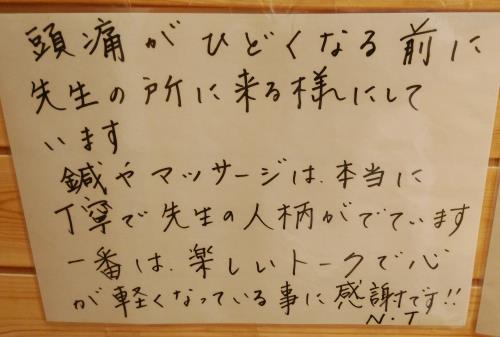 頭痛がひどくなる前に
先生の所に来る様にして
います
鍼やマッサージは、本当に
丁寧で先生の人柄がでています
一番は、楽しいトークで心
が軽くなっている事に感謝です!!
N・T